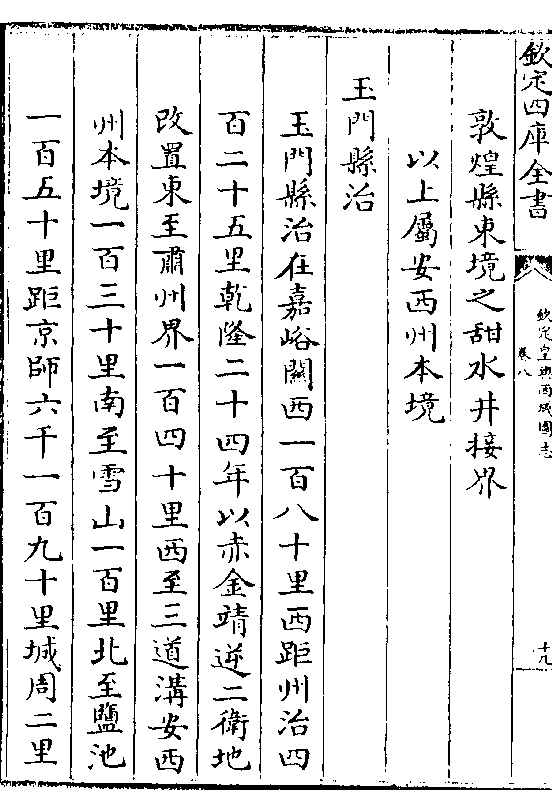 欽定四庫全書
欽定皇輿西域圖志
卷八
十九
敦煌縣東境之甜水井接界
以上屬安西州本境
玉門縣治
玉門縣治在嘉峪關西一百八十里西距州治四
百二十五里乾隆二十四年以赤金靖逆二衛地
改置東至肅州界一百四十里西至三道溝安西
州本境一百三十里南至雪山一百里北至鹽池
一百五十里距京師六千一百九十里城周二里